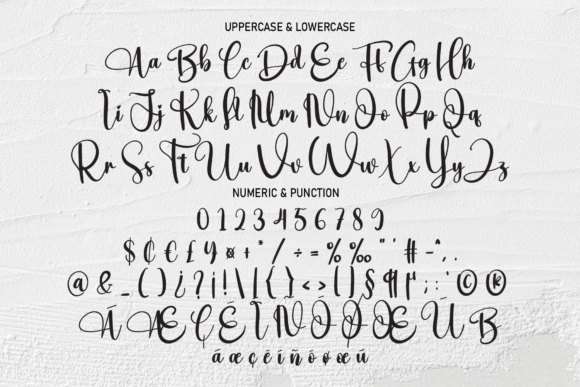 UPPERCASE & LOWERCASE
Aa Bb Cc Dd Ee Ff Gg Hh
Ii Jj Kk Ll Mm Nn Oo Pp Qq
Rr Ss Tt Uu Vv Ww Xx Yy Zz
NUMERIC & PUNCTION
0 1 2 3 4 5 6 7 8 9
$ ₵ € £ ¥ ¤ + * / ÷ = % ‰ " ' # - ^ , .
@ & _ ( ) ¿ ? ¡ ! \ | { } < > [ ] § ¶ ¦ ; : ` © ®
Á Æ Ç É Í Ñ Ó Ø Œ Ú ß
á æ ç é í ñ ó ø œ ú